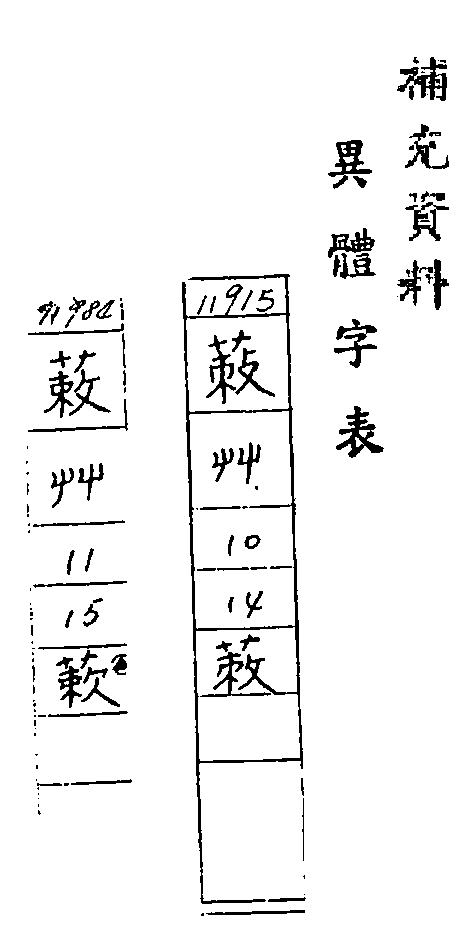 補充資料
異體字表
11915
艸
10
14
11984
艸
11
15
蔌